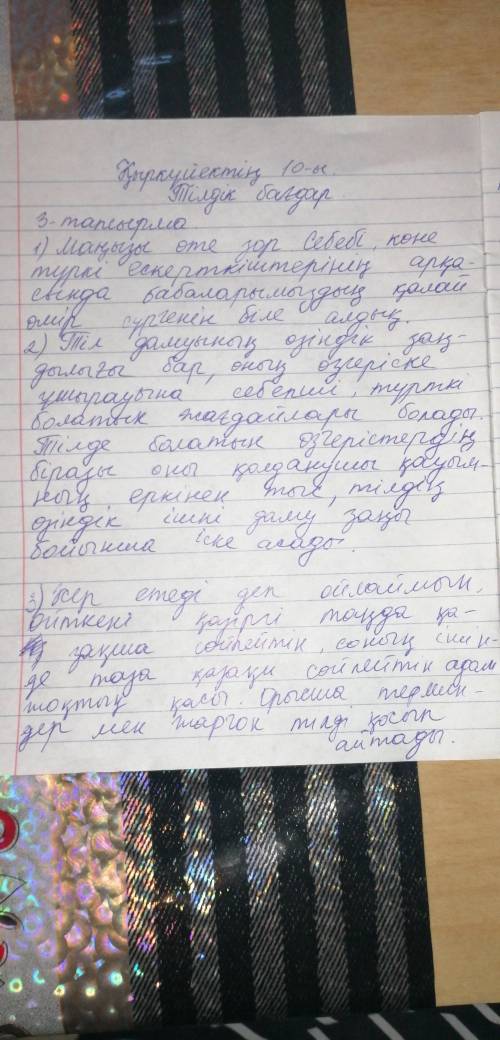 Қыркүйектің 10-ы.
Тілдік бағдар.
3-тапсырма
1) Маңызы өте зор. Себебі, көне
түркі ескерткіштерінің арқа-
сында бабаларымыздың қалай
өмір сүргенін біле алдық.
2) Тіл дамуының өзіндік заң-
дылығы бар, оның өзгеріске
ұшырауына себепші, түрткі
болатын жағдайлары болады.
Тілде болатын өзгерістердің
біразы оны қолданушы қауым-
ның еркінен тыс, тілдің
өзіндік ішкі даму заңы
бойынша іске асады.
3) Әсер етеді деп ойлаймын,
өйткені қазіргі таңда қа-
зақша сөйлейтін, соның ішін-
де таза қазақы сөйлейтін адам
жоқтың қасы. Орысша термин-
дер мен жаргон тілді қосып
айтады.